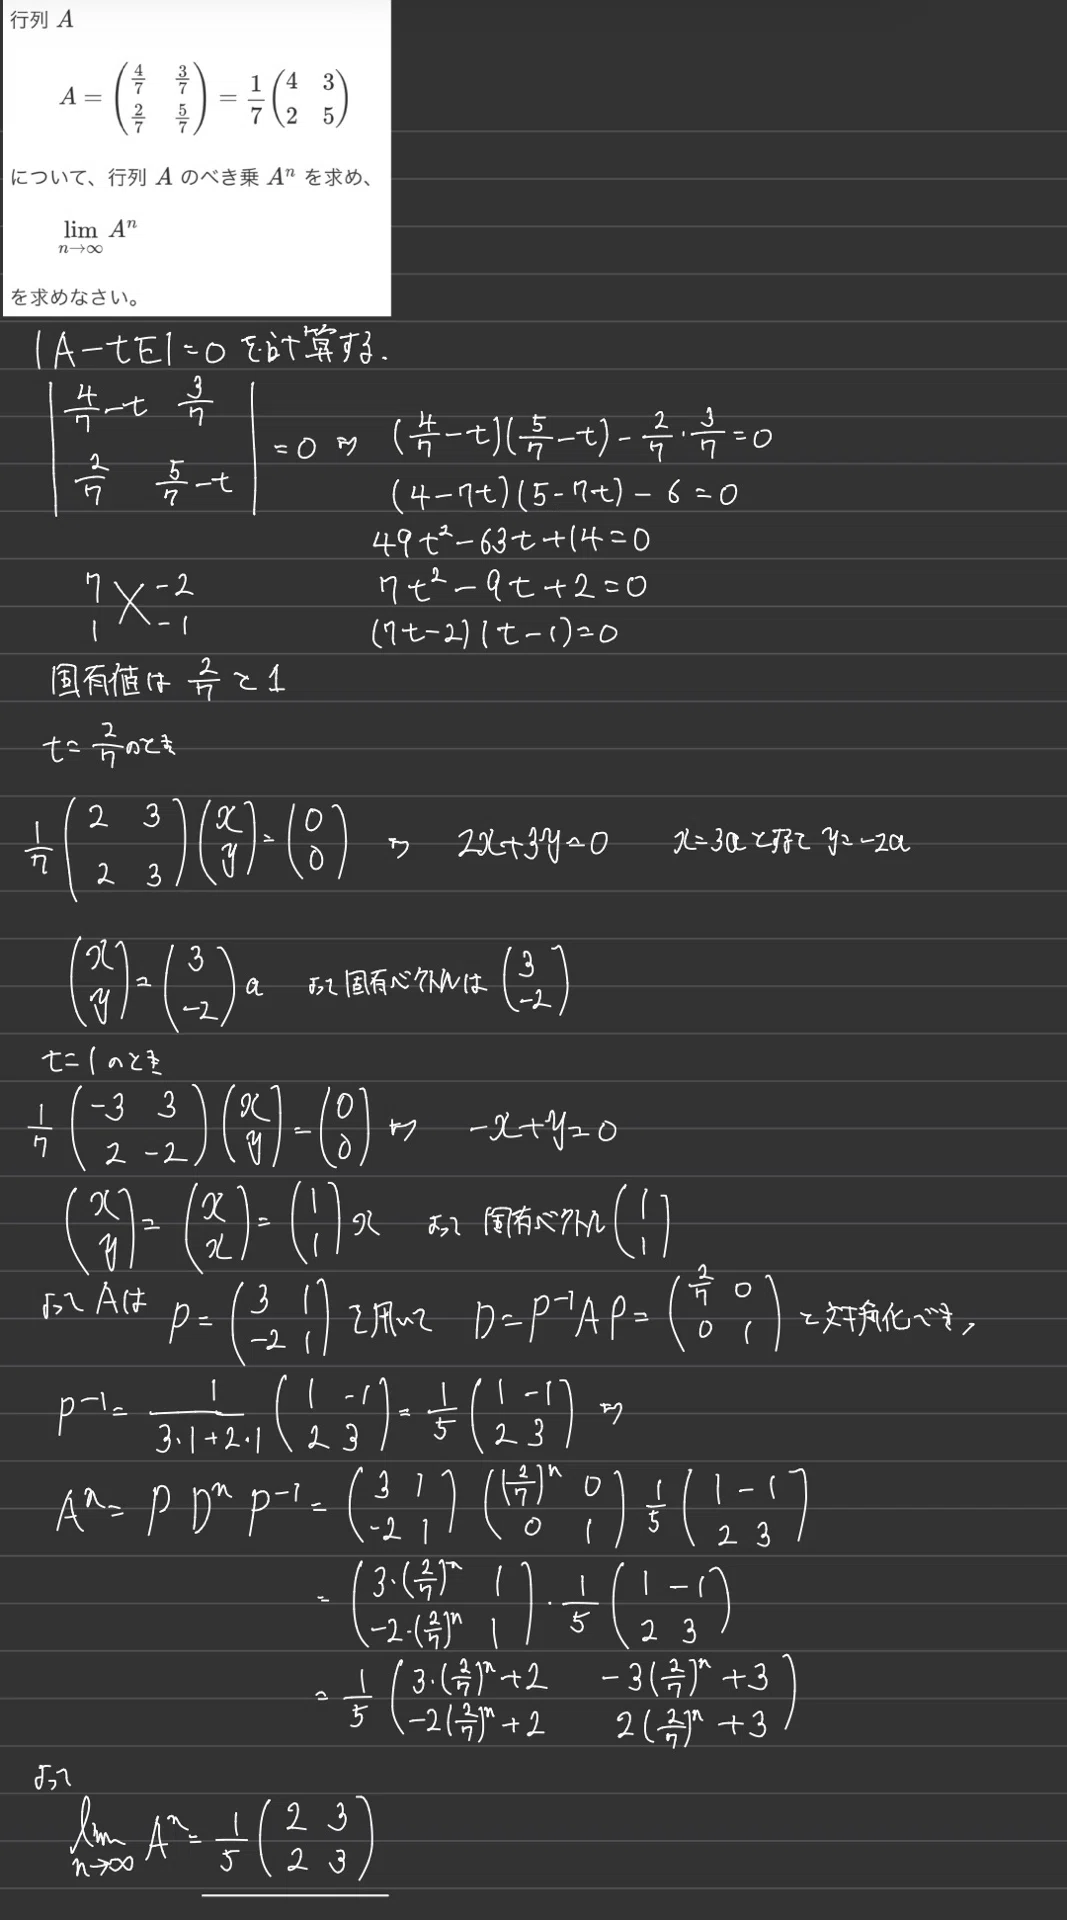 行列 A
A = \begin{pmatrix} \frac{4}{7} & \frac{3}{7} \\ \frac{2}{7} & \frac{5}{7} \end{pmatrix} = \frac{1}{7} \begin{pmatrix} 4 & 3 \\ 2 & 5 \end{pmatrix}
について、行列 A のべき乗 A^n を求め、
\lim_{n→∞} A^n
を求めなさい。
|A-tE|=0 を計算する.
\begin{vmatrix} \frac{4}{7}-t & \frac{3}{7} \\ \frac{2}{7} & \frac{5}{7}-t \end{vmatrix} = 0 ⇔ (\frac{4}{7}-t)(\frac{5}{7}-t) - \frac{2}{7}·\frac{3}{7} = 0
(4-7t)(5-7t) - 6 = 0
49t^2-63t+14=0
7t^2-9t+2=0
(7t-2)(t-1)=0
7 -2
1 -1
固有値は \frac{2}{7} と 1
t=\frac{2}{7} のとき
\frac{1}{7} \begin{pmatrix} 2 & 3 \\ 2 & 3 \end{pmatrix} \begin{pmatrix} x \\ y \end{pmatrix} = \begin{pmatrix} 0 \\ 0 \end{pmatrix} ⇔ 2x+3y=0 x=3a と y=-2a
\begin{pmatrix} x \\ y \end{pmatrix} = \begin{pmatrix} 3 \\ -2 \end{pmatrix} a よって固有ベクトルは \begin{pmatrix} 3 \\ -2 \end{pmatrix}
t=1 のとき
\frac{1}{7} \begin{pmatrix} -3 & 3 \\ 2 & -2 \end{pmatrix} \begin{pmatrix} x \\ y \end{pmatrix} = \begin{pmatrix} 0 \\ 0 \end{pmatrix} ⇔ -x+y=0
\begin{pmatrix} x \\ y \end{pmatrix} = \begin{pmatrix} x \\ x \end{pmatrix} = \begin{pmatrix} 1 \\ 1 \end{pmatrix} x よって 固有ベクトル \begin{pmatrix} 1 \\ 1 \end{pmatrix}
よって Aは P = \begin{pmatrix} 3 & 1 \\ -2 & 1 \end{pmatrix} を用いて D=P^{-1}AP = \begin{pmatrix} \frac{2}{7} & 0 \\ 0 & 1 \end{pmatrix} と対角化でき,
P^{-1} = \frac{1}{3·1+2·1} \begin{pmatrix} 1 & -1 \\ 2 & 3 \end{pmatrix} = \frac{1}{5} \begin{pmatrix} 1 & -1 \\ 2 & 3 \end{pmatrix} ⇔
A^n = P D^n P^{-1} = \begin{pmatrix} 3 & 1 \\ -2 & 1 \end{pmatrix} \begin{pmatrix} (\frac{2}{7})^n & 0 \\ 0 & 1 \end{pmatrix} \frac{1}{5} \begin{pmatrix} 1 & -1 \\ 2 & 3 \end{pmatrix}
= \begin{pmatrix} 3·(\frac{2}{7})^n & 1 \\ -2·(\frac{2}{7})^n & 1 \end{pmatrix} · \frac{1}{5} \begin{pmatrix} 1 & -1 \\ 2 & 3 \end{pmatrix}
= \frac{1}{5} \begin{pmatrix} 3·(\frac{2}{7})^n+2 & -3(\frac{2}{7})^n+3 \\ -2(\frac{2}{7})^n+2 & 2(\frac{2}{7})^n+3 \end{pmatrix}
よって
\lim_{n→∞} A^n = \frac{1}{5} \begin{pmatrix} 2 & 3 \\ 2 & 3 \end{pmatrix}